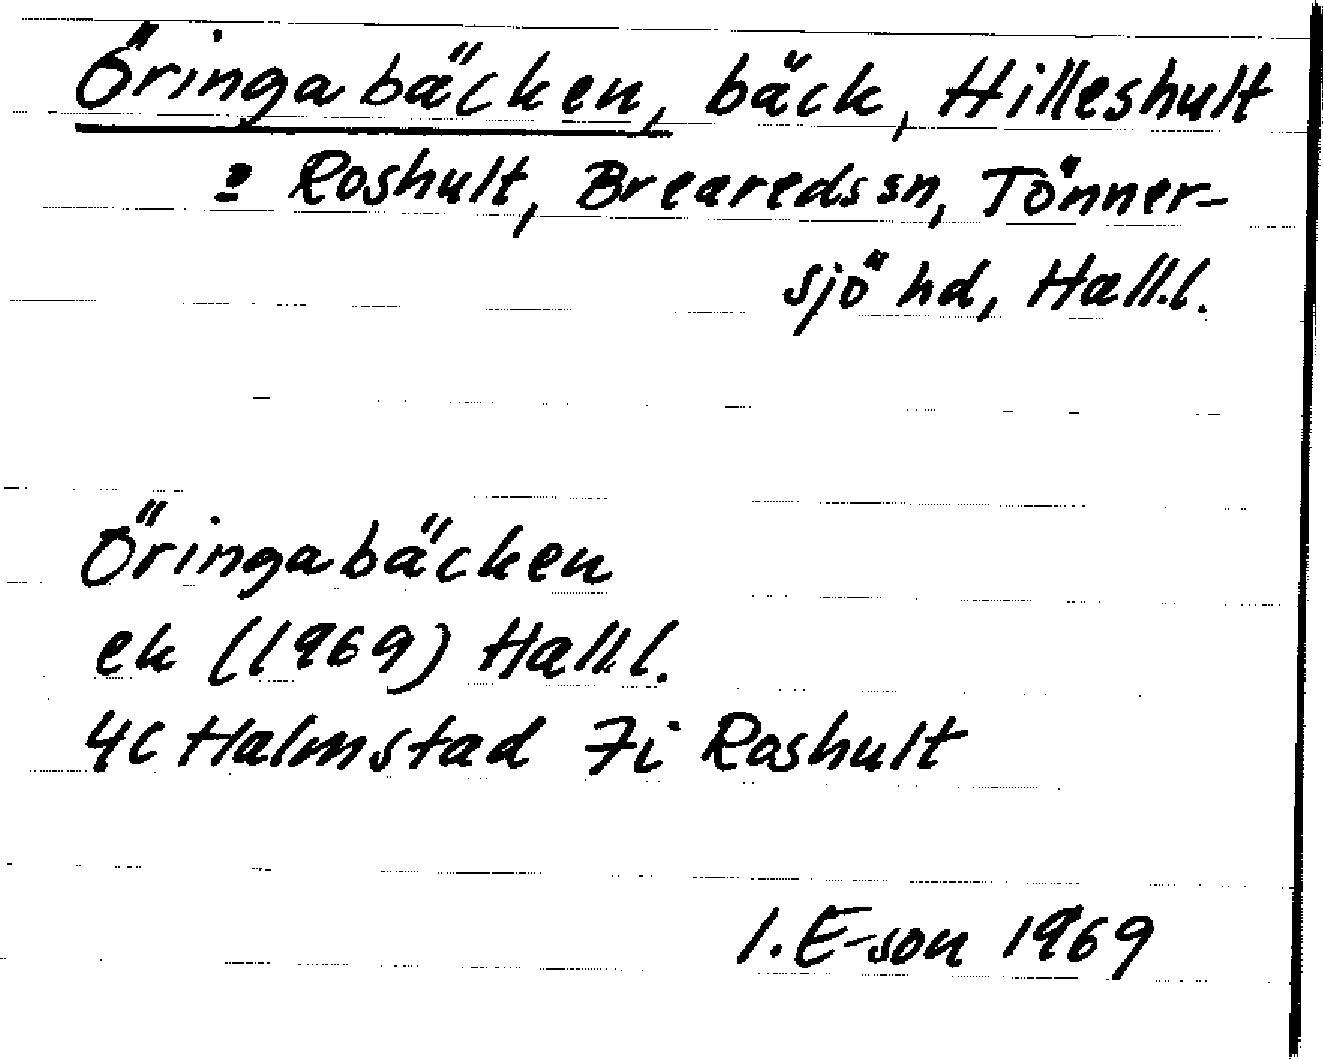 Öringabäcken, bäck, Hilleshult
o Roshult, Breareds sn, Tönner-
sjö hd, Hall.l.
Öringabäcken
ek (1969) Hall.l.
4C Halmstad 7i Roshult
I. E-son 1969